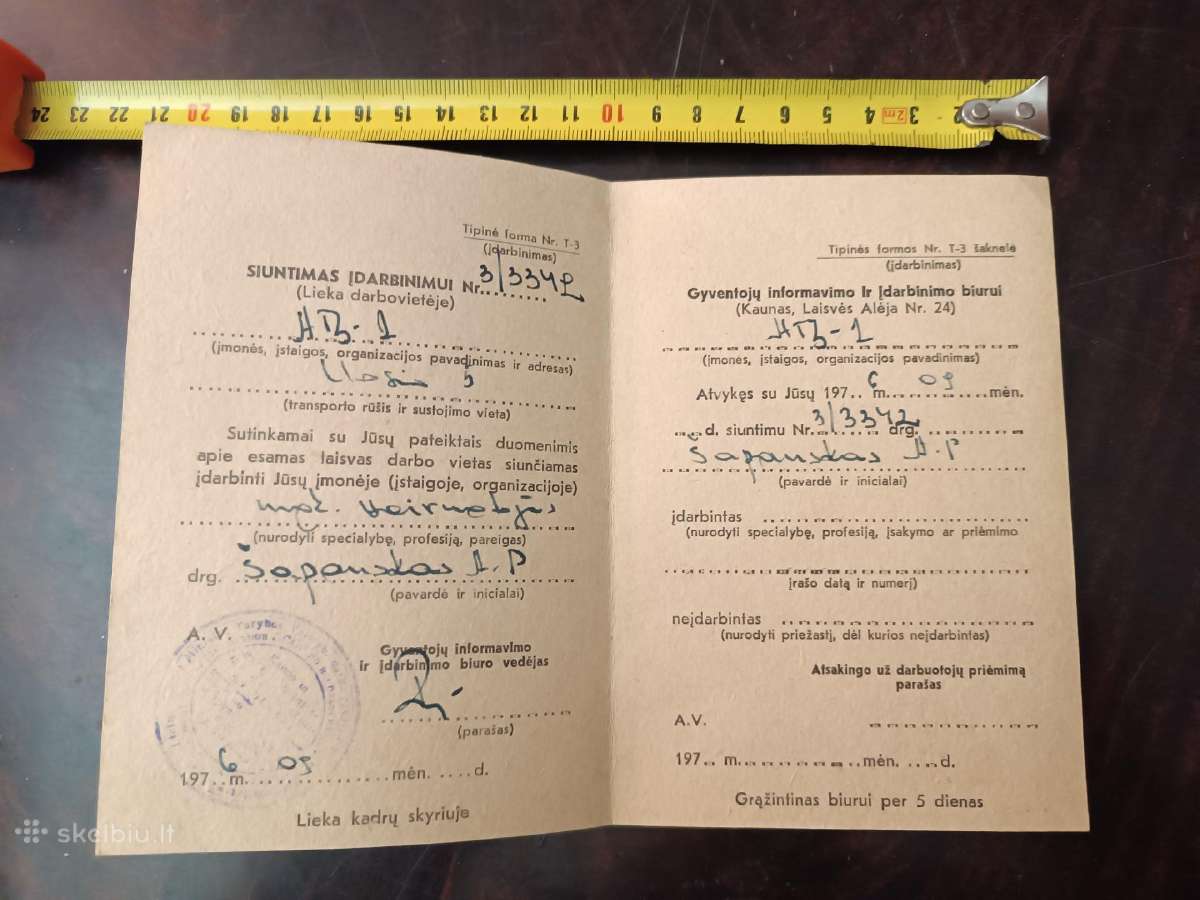 24 23 22 21 20 19 18 17 16 15 14 13 12 11 10 9 8 7 6 5 4 2m 3 2
Tipinė forma Nr. T-3
(įdarbinimas)
SIUNTIMAS ĮDARBINIMUI Nr. 3/3342
(Lieka darbovietėje)
(įmonės, įstaigos, organizacijos pavadinimas ir adresas)
(transporto rūšis ir sustojimo vieta)
Sutinkamai su Jūsų pateiktais duomenimis
apie esamas laisvas darbo vietas siunčiamas
įdarbinti Jūsų įmonėje (įstaigoje, organizacijoje)
(nurodyti specialybę, profesiją, pareigas)
drg. Šapauskas A.P
(pavardė ir inicialai)
A. V.
Gyventojų informavimo
ir įdarbinimo biuro vedėjas
(parašas)
197 6 m. 09 mėn. d.
Lieka kadrų skyriuje
Tipinės formos Nr. T-3 šaknelė
(įdarbinimas)
Gyventojų informavimo Ir Įdarbinimo biurui
(Kaunas, Laisvės Alėja Nr. 24)
(įmonės, įstaigos, organizacijos pavadinimas)
Atvykęs su Jūsų 197 6 m. 09 mėn.
d. siuntimu Nr. 3/3342 drg.
Šapauskas A.P
(pavardė ir inicialai)
įdarbintas
(nurodyti specialybę, profesiją, įsakymo ar priėmimo
įrašo datą ir numerį)
neįdarbintas
(nurodyti priežastį, dėl kurios neįdarbintas)
Atsakingo už darbuotojų priėmimą
parašas
A.V.
197 m. mėn. d.
Grąžintinas biurui per 5 dienas
skelbiu.lt